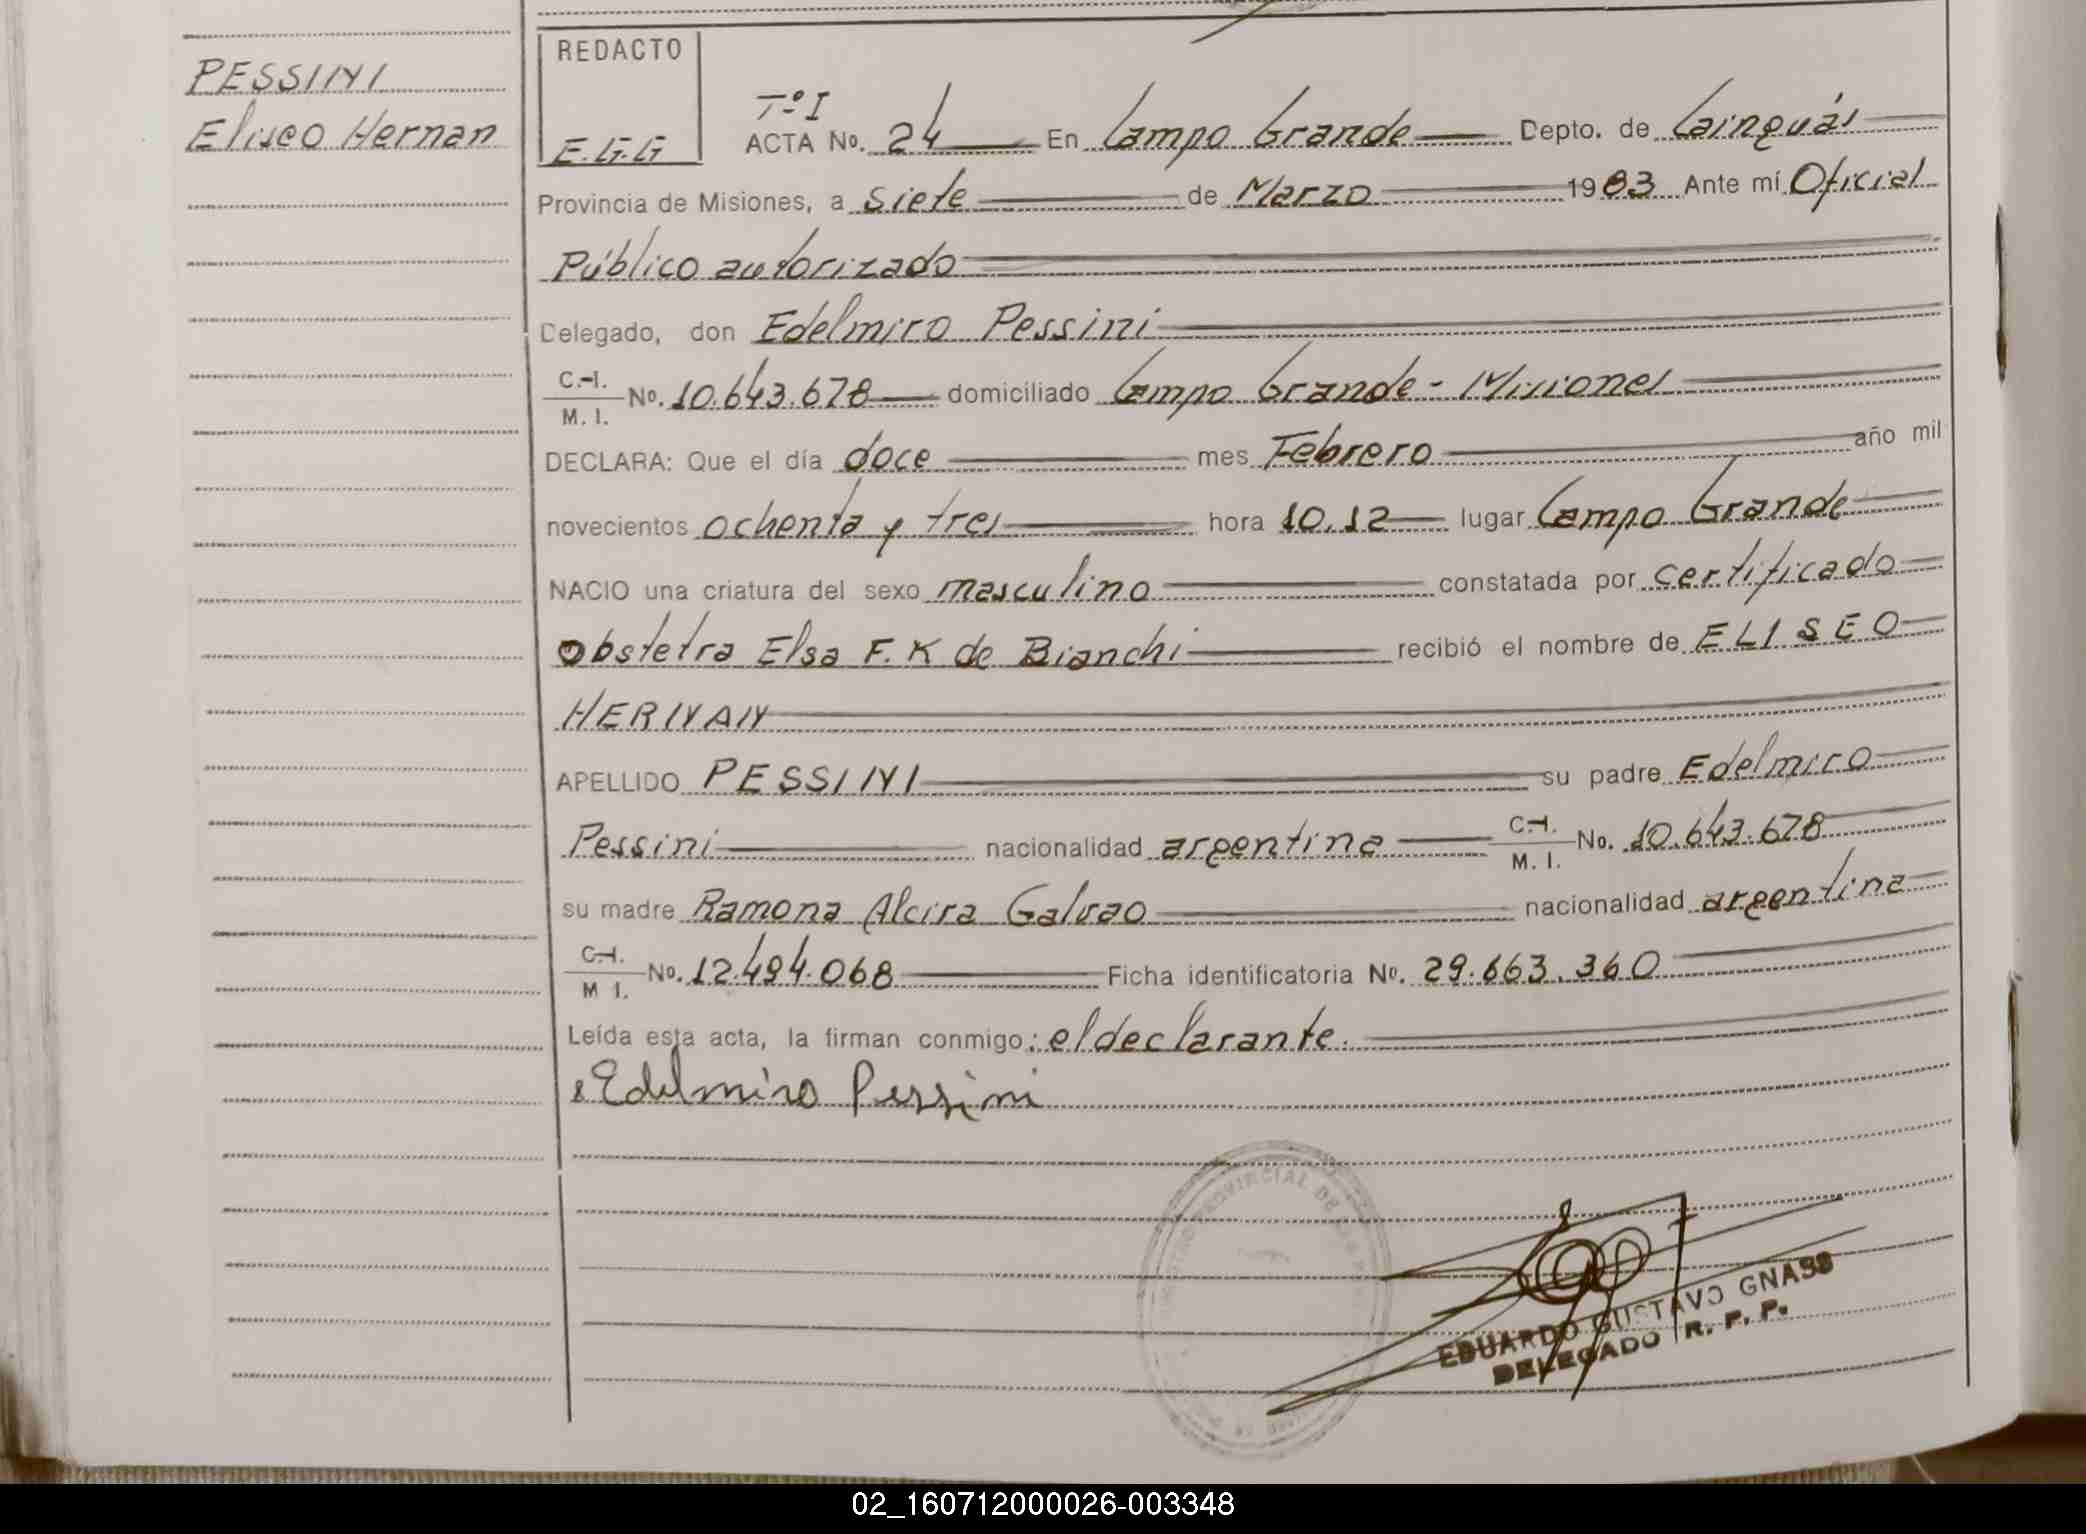 PESSINI
Eliseo Hernan
REDACTO
E.G.G
Tº I
ACTA No. 24 En Campo Grande Depto. de Cainguás
Provincia de Misiones, a siete de Marzo 1983 Ante mí Oficial
Público autorizado
Delegado, don Edelmiro Pessini
C.I. M. I. No. 10.643.678 domiciliado Campo Grande - Misiones
DECLARA: Que el día doce mes Febrero año mil
novecientos ochenta y tres hora 10.12 lugar Campo Grande
NACIO una criatura del sexo masculino constatada por certificado
Obstetra Elsa F. K de Bianchi recibió el nombre de ELISEO
HERNAN
APELLIDO PESSINI su padre Edelmiro
Pessini nacionalidad argentina C.I. M. I. No. 10.643.678
su madre Ramona Alcira Galvao nacionalidad argentina
C.I. M I. No. 12.494.068 Ficha identificatoria No. 29.663.360
Leída esta acta, la firman conmigo: el declarante.
Edelmiro Pessini
PROVINCIAL DE
EDUARDO GUSTAVO GNASS
DELEGADO R. P. P.
02_160712000026-003348